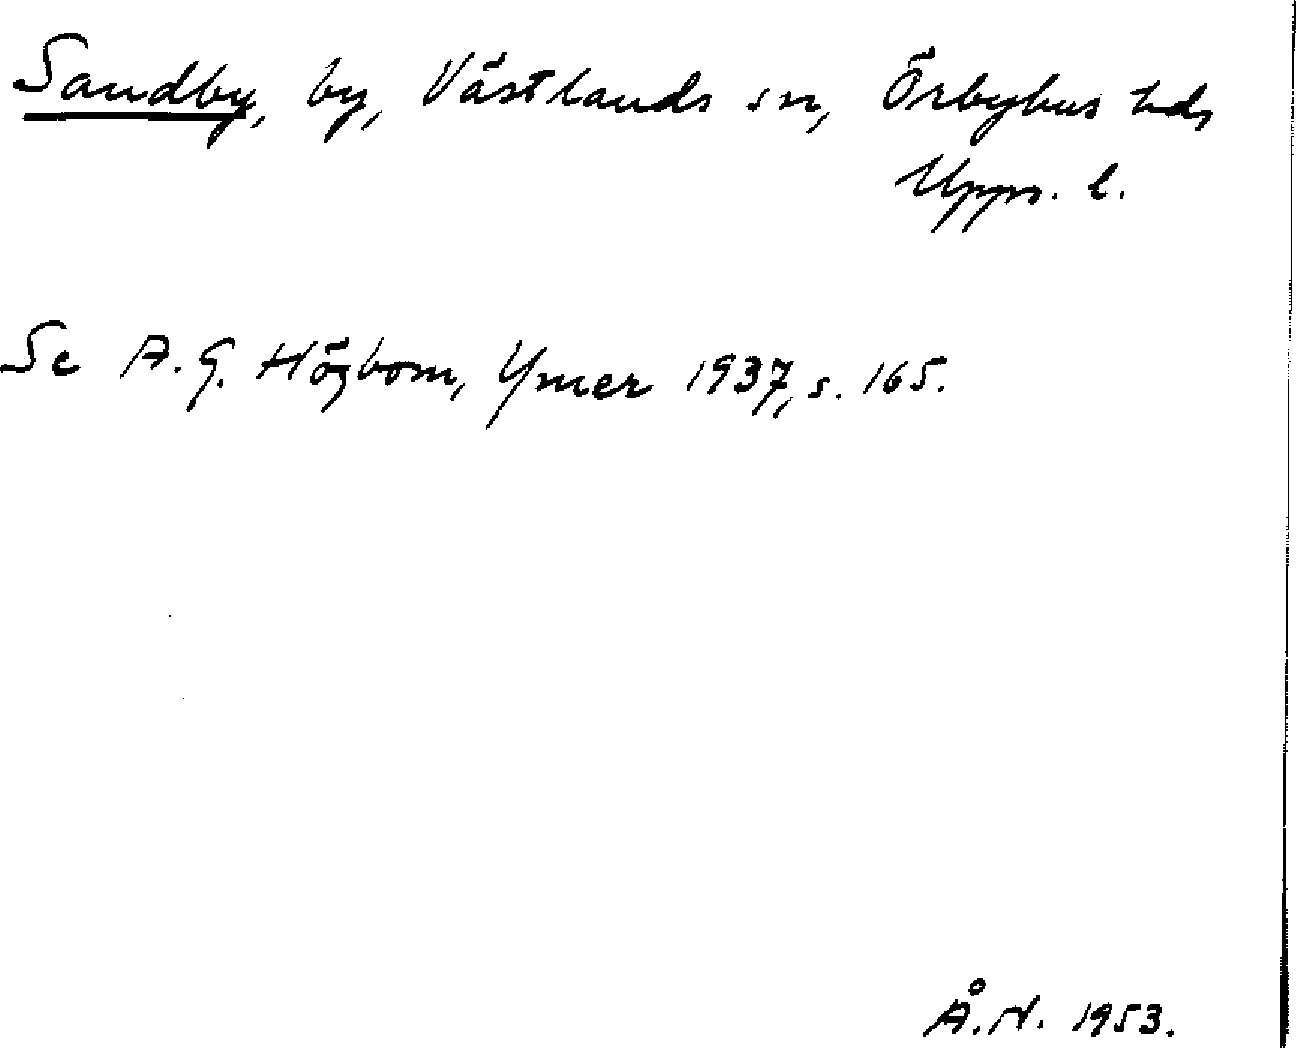 Sandby, by, Västlands sn, Örbyhus hd,
Upps. l.
Se A. G. Högbom, Ymer 1937, s. 165.
Å. N. 1953.